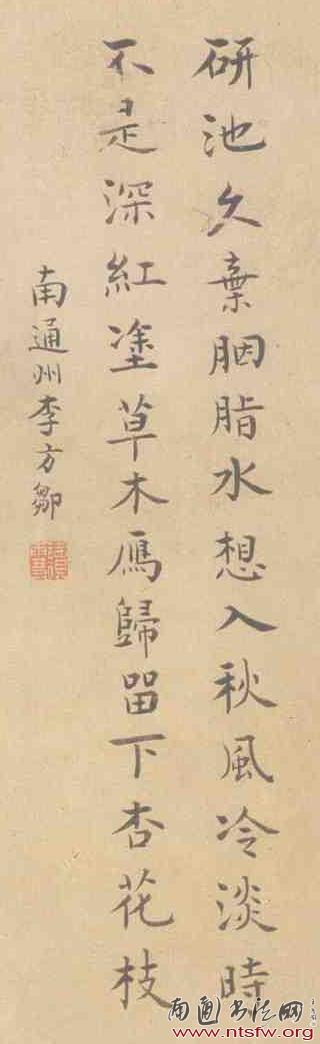 研池久棄胭脂水想入秋風冷淡時
不是深紅塗草木鴈歸畱下杏花枝
南通州李方鄒
南通书法网
www.ntsfw.org